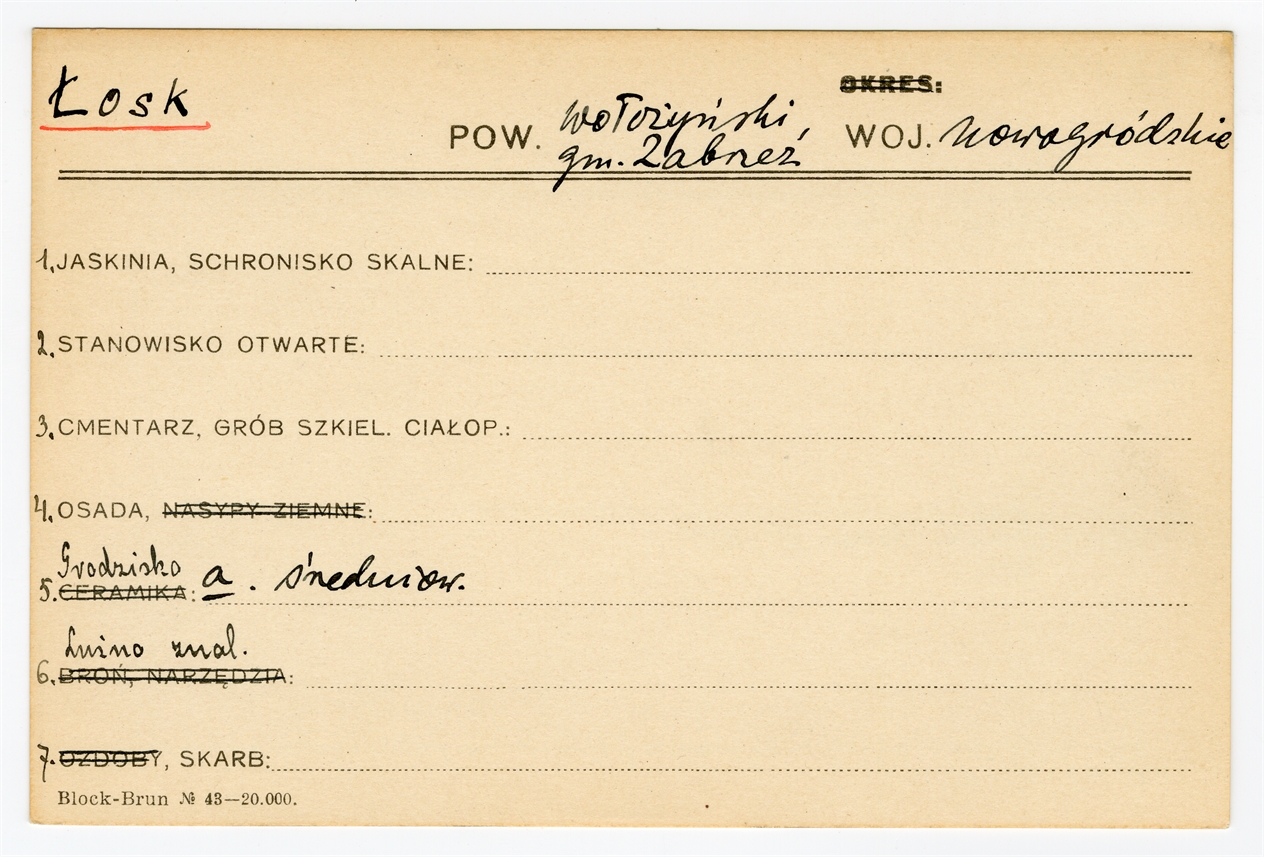 Łosk
OKRES:
POW. wołożyński, WOJ. Nowogródzkie
gm. Zabrzeź
1. JASKINIA, SCHRONISKO SKALNE:
2. STANOWISKO OTWARTE:
3. CMENTARZ, GRÓB SZKIEL. CIAŁOP.:
4. OSADA, NASYPY ZIEMNE:
Grodzisko
5. CERAMIKA: a. średniow.
Luźno znal.
6. BROŃ, NARZĘDZIA:
7. OZDOBY, SKARB:
Block-Brun № 43—20.000.